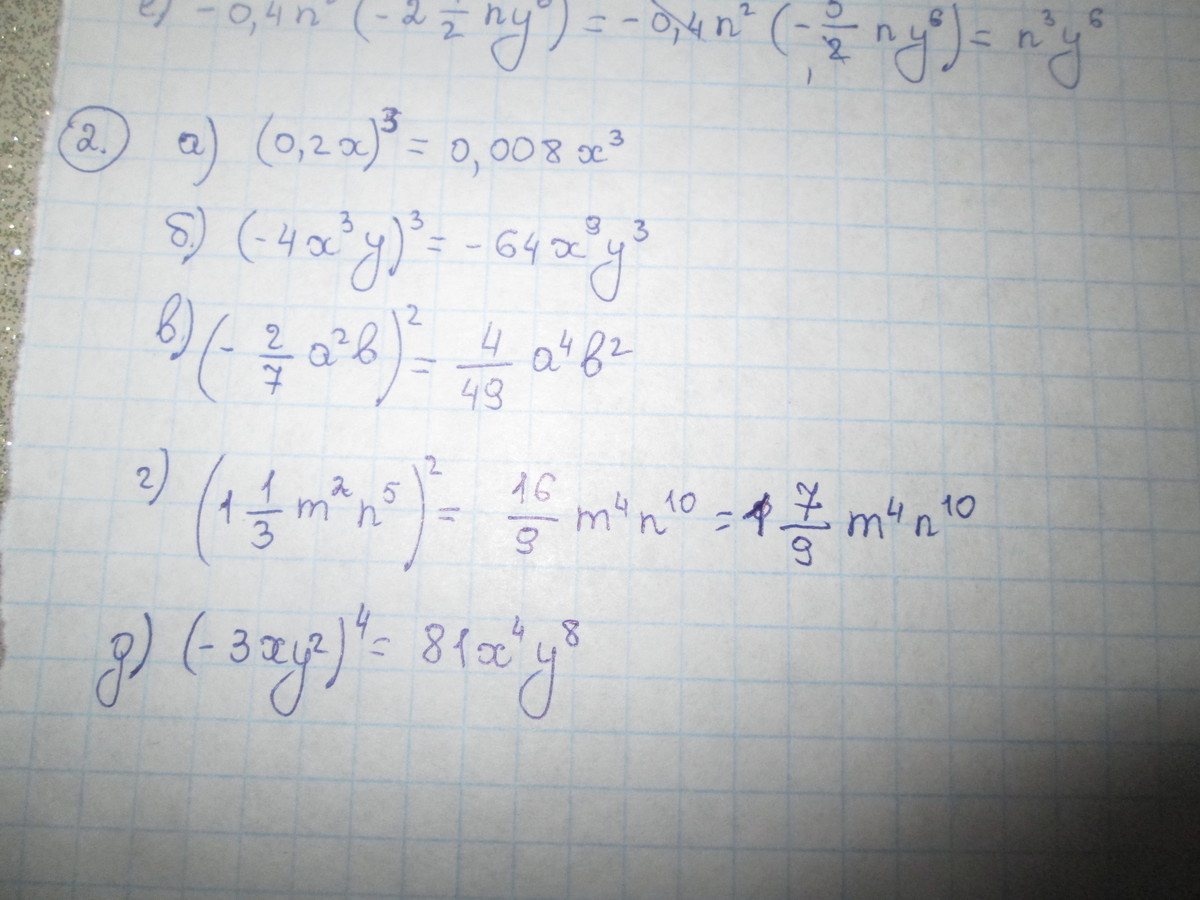 е) -0,4n² (-2 1/2 ny⁶) = -0,4n² (-5/2 ny⁶) = n³y⁶
2. а) (0,2x)³ = 0,008x³
б) (-4x³y)³ = -64x⁹y³
в) (-2/7 a²b)² = 4/49 a⁴b²
г) (1 1/3 m²n⁵)² = 16/9 m⁴n¹⁰ = 1 7/9 m⁴n¹⁰
д) (-3xy²)⁴ = 81x⁴y⁸